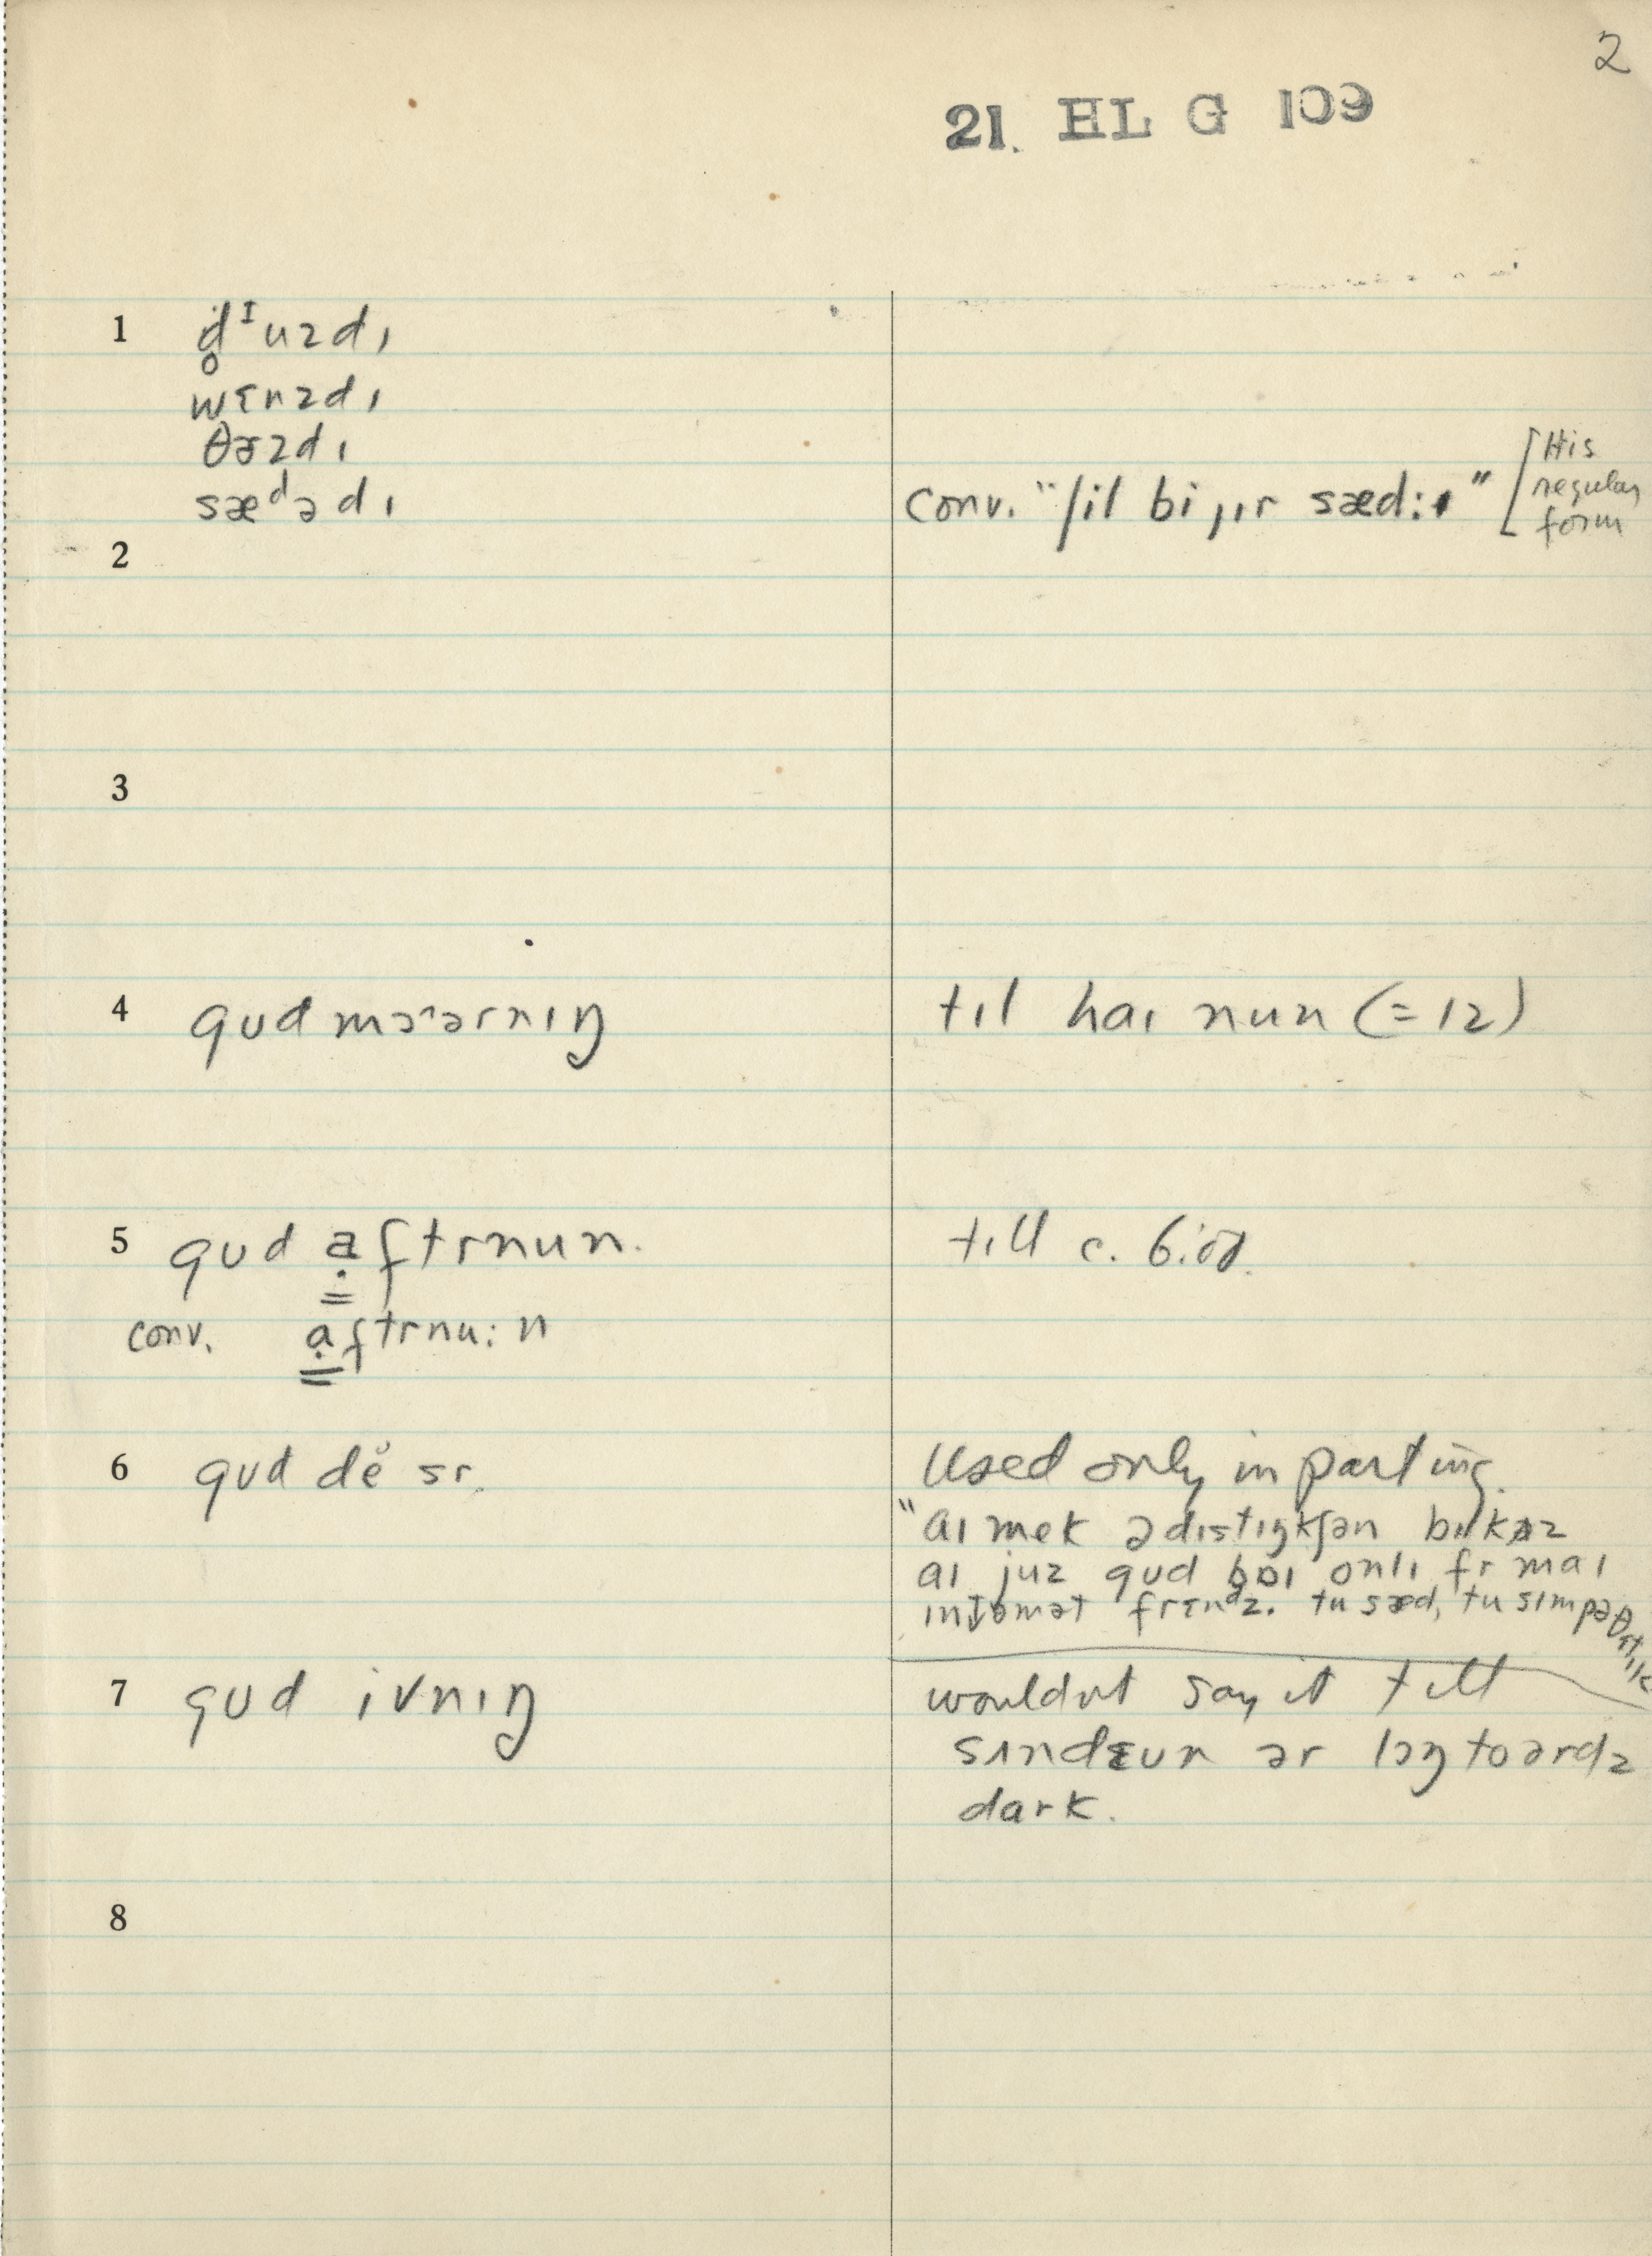 2
21. HL G 109
1 d̥ᴵuzdɪ
wɛnzdɪ
θɚzdɪ
sæᵈədɪ
conv. "ʃil bi ɪɪr sæd:ɪ" [His
regular
form
2
3
4 gud mɔ˞ərnɪŋ
tɪl haɪ nun (=12)
5 gud ạftrnun.
till c. 6:00.
conv. ạftrnu:n
6 gud dĕ sr.
Used only in parting.
"aɪ mek ədɪstɪŋkʃən bɪkʌz
aɪ juz gud baɪ onlɪ fr maɪ
ɪntəmət frɛnᵈz. tu sæd, tu sɪmpəθɛtɪk
7 gud ivnɪŋ
wouldnt say it till
sʌndɛun ər lɔŋ toərdz
dark.
8